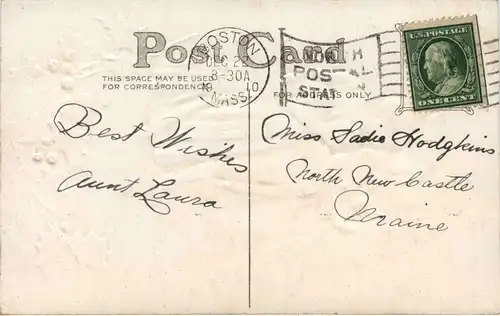 Post Card
THIS SPACE MAY BE USED
FOR CORRESPONDENCE
FOR ADDRESS ONLY
BOSTON
DEC 22
8-30A
19 10
MASS.
POS
STAT
U.S. POSTAGE
ONE CENT
Best Wishes
Aunt Laura
Miss Sadie Hodgkins
North New Castle
Maine